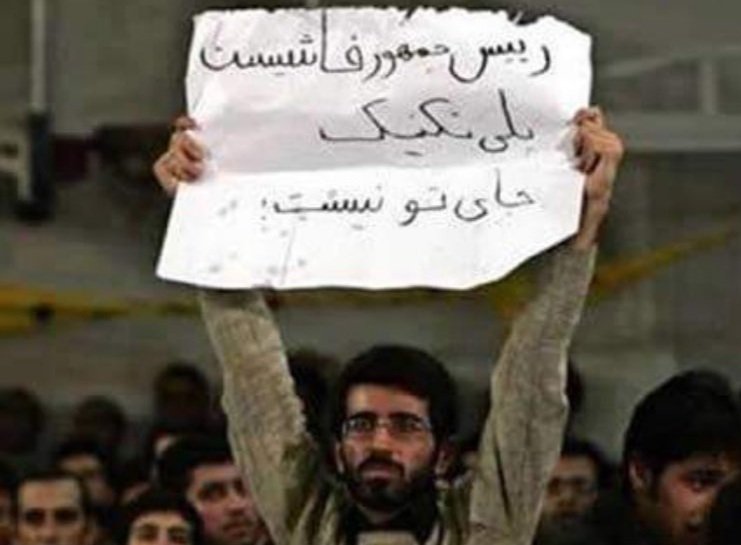 رییس جمهور فاشیست
پلی تکنیک
جای تو نیست!